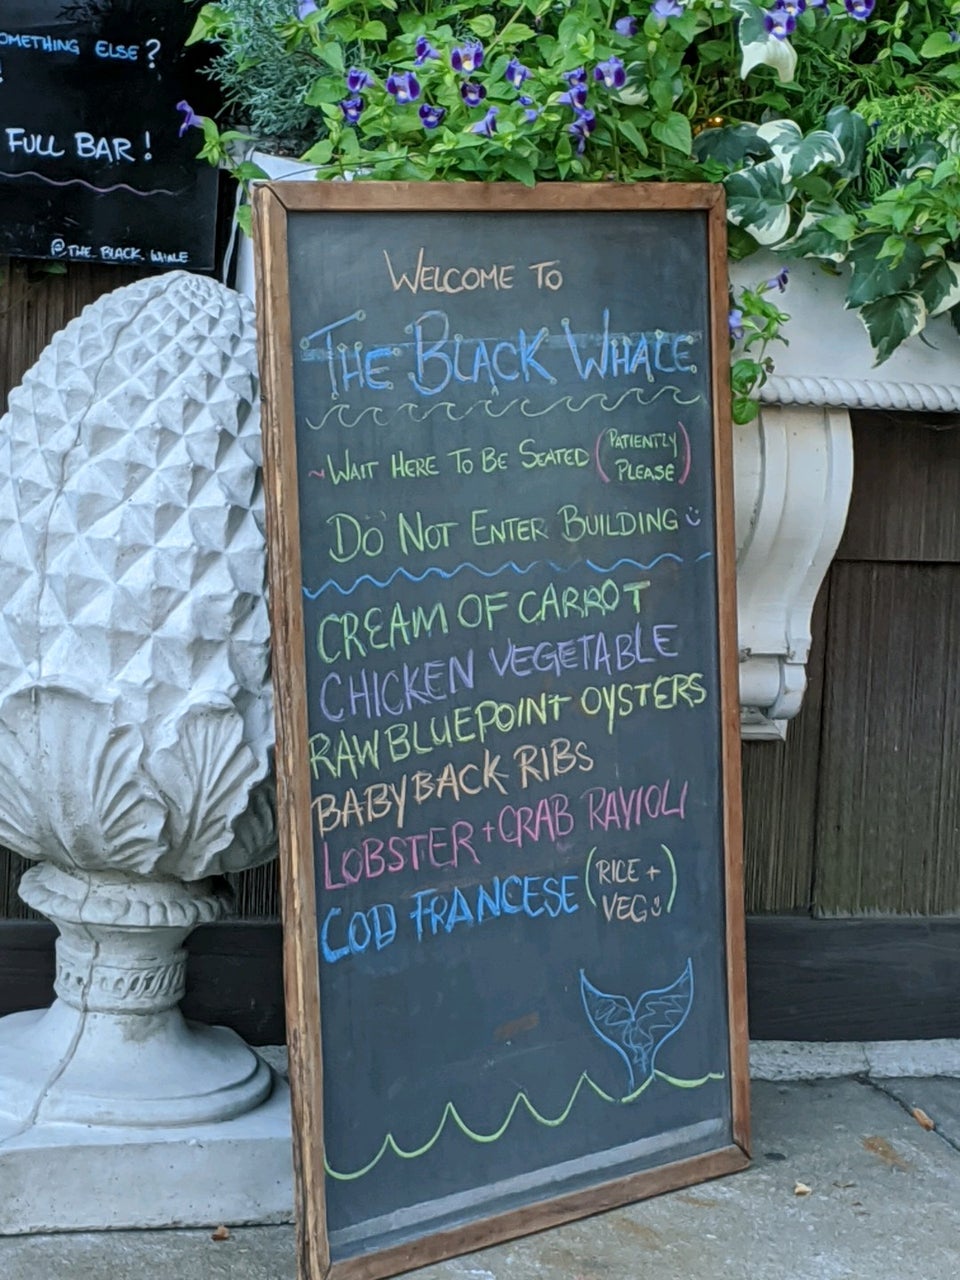 OMETHING ELSE?
!
FULL BAR!
@THE.BLACK.WHALE
WELCOME TO
THE BLACK WHALE
~WAIT HERE TO BE SEATED (PATIENTLY
PLEASE)
DO NOT ENTER BUILDING
CREAM OF CARROT
CHICKEN VEGETABLE
RAW BLUEPOINT OYSTERS
BABY BACK RIBS
LOBSTER + CRAB RAVIOLI
COD FRANCESE (RICE +
VEG)